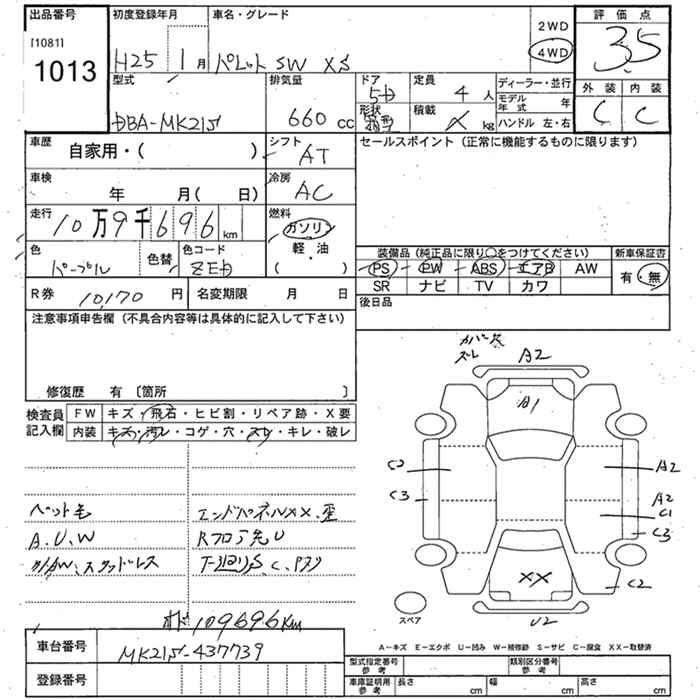 出品番号
[1081]
1013
初度登録年月
H25 1月
車名・グレード
パレット SW XS
2WD
4WD
評価点
3.5
外装 内装
C C
型式
DBA-MK21S
排気量
660 cc
ドア
5D
形状
定員
4人
積載
kg
ディーラー・並行
モデル年式 年
ハンドル 左・右
車歴
自家用・( )
シフト
AT
セールスポイント(正常に機能するものに限ります)
車検
年 月( 日)
冷房
AC
走行
10万9千696km
燃料
ガソリン
軽・油
( )
色
パープル
色替
色コード
ZED
装備品(純正品に限り○をつけてください)
PS PW ABS エアB AW
SR ナビ TV カワ
新車保証書
有・無
R券
10,170円
名変期限 月 日
後日品
注意事項申告欄(不具合内容等は具体的に記入して下さい)
修復歴 有〔箇所 〕
検査員記入欄
FW キズ・飛石・ヒビ割・リペア跡・X要
内装 キズ・汚レ・コゲ・穴・スレ・キレ・破レ
ペット毛
A.U.W
エンドパネルXX、歪
Rフロア先U
下廻りS、C、Pスリ
オド109696Km
カバー欠
ズレ
A2
A1
C2
C3
A2
A2
C1
C3
C2
XX
U2
スペア
A−キズ E−エクボ U−凹み W−補修跡 S−サビ C−腐食 XX−取替済
車台番号
MK21S-437739
登録番号
型式指定番号 参考
類別区分番号 参考
車庫証明用 参考
長さ cm
幅 cm
高さ cm